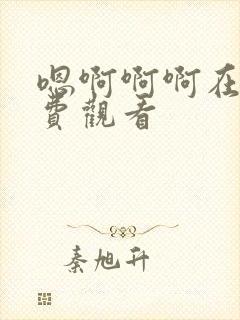 嗯啊啊啊在
費觀看
秦旭升